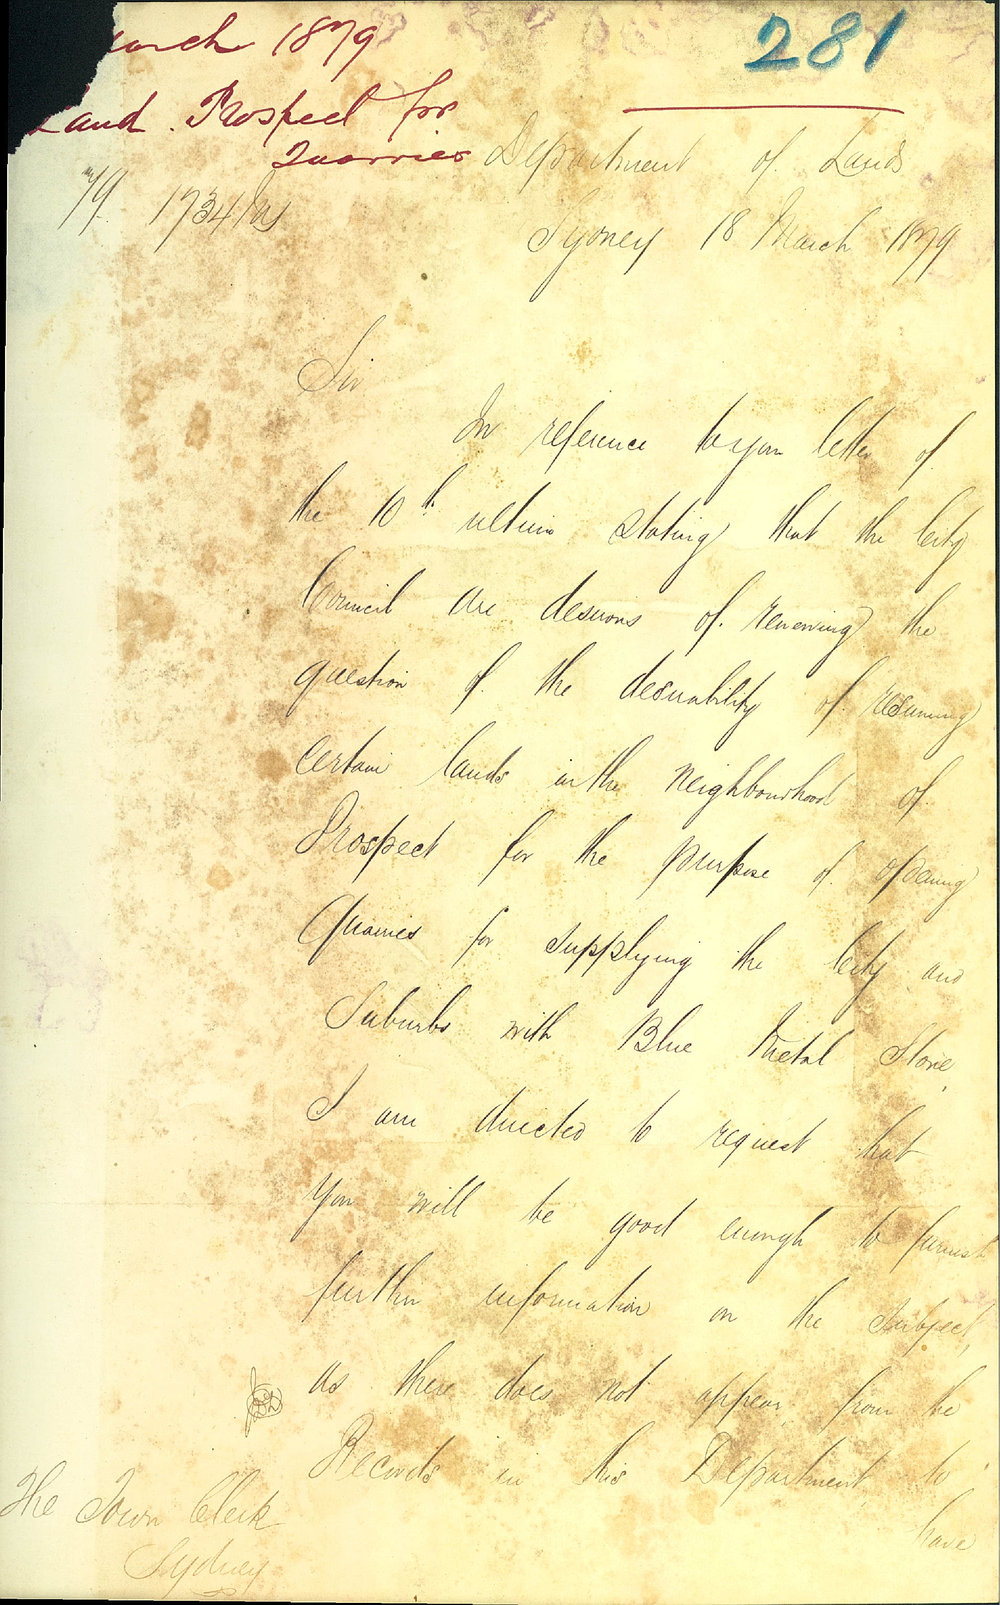 281
arch 1879
Land Prospect for
Quarries
Department of Lands
79. 1734
Sydney 18 March 1879
Sir
In reference to your letter of
the 10th ultimo stating that the City
Council are desirous of renewing the
question of the desirability of resuming
certain lands in the neighbourhood of
Prospect for the purpose of opening
Quarries for supplying the City and
Suburbs with Blue Metal Stone,
I am directed to request that
you will be good enough to furnish
further information on the subject,
as there does not appear from the
Records in this Department to
have
The Town Clerk
Sydney